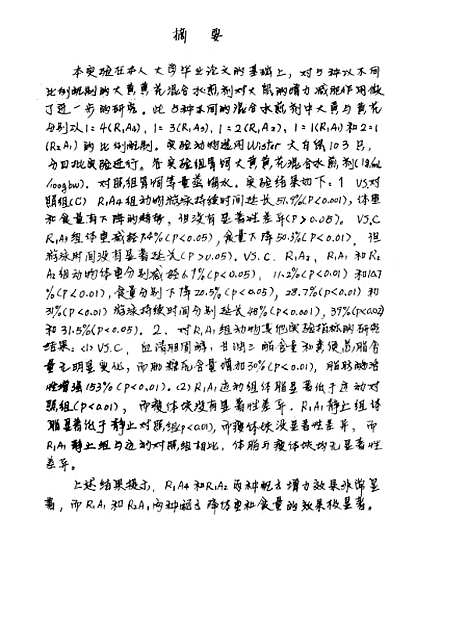 摘 要
本实验在本人大学毕业论文的基础上，对5种以不同
比例配制的大黄黄芪混合水煎剂对大鼠的增力减肥作用做
了进一步的研究。此5种不同的混合水煎剂中大黄与黄芪
分别以1=4(R1A4)，1=3(R1A3)，1=2(R1A2)，1=1(R1A1)和2=1
(R2A1)的比例配制。实验动物选用Wister大白鼠103只，
分四批实验进行。各实验组胃饲大黄黄芪混合水煎剂
/100gbw)．对照组胃饲等量蒸馏水。实验结果如下：1 VS.对
照组(C) R1A4组动物游泳持续时间延长51.9%(P<0.001)，体重
和食量有下降的趋势，但没有显著性差异(P>0.05)。VS.C
R1A3组体重减轻7.4%(P<0.05)，食量下降50.3%(P<0.01)，但
游泳时间没有显著延长(P>0.05)。VS.C．R1A2，R1A1和R2
A1组动物体重分别减轻6.9%(P<0.05)，11.2%(P<0.01)和10.7
%(P<0.01)，食量分别下降20.5%(P<0.05)，28.7%(P<0.01)和
31%(P<0.01)游泳持续时间分别延长48%(P<0.001)，39%(P<0.02)
和31.5%(P<0.05)．2．对R1A1组动物其他实验指标的研究
结果：(1)VS.C，血清胆固醇，甘油三酯含量和粪便总脂含
量无明显变化，而肌糖元含量增加30%(P<0.01)，脂肪酶活
性增强153%(P<0.01)．(2)R1A1运动组体脂显著低于运动对
照组(P<0.01)，而瘦体块没有显著性差异．R1A1静止组体
脂显著低于静止对照组(P<0.01)，而瘦体块没显著性差异，而
R1A1静止组与运动对照组相比，体脂与瘦体块均无显著性
差异。
上述结果提示，R1A4和R1A2两种配方增力效果非常显
著，而R1A1和R2A1两种配方降体重和食量的效果极显著。